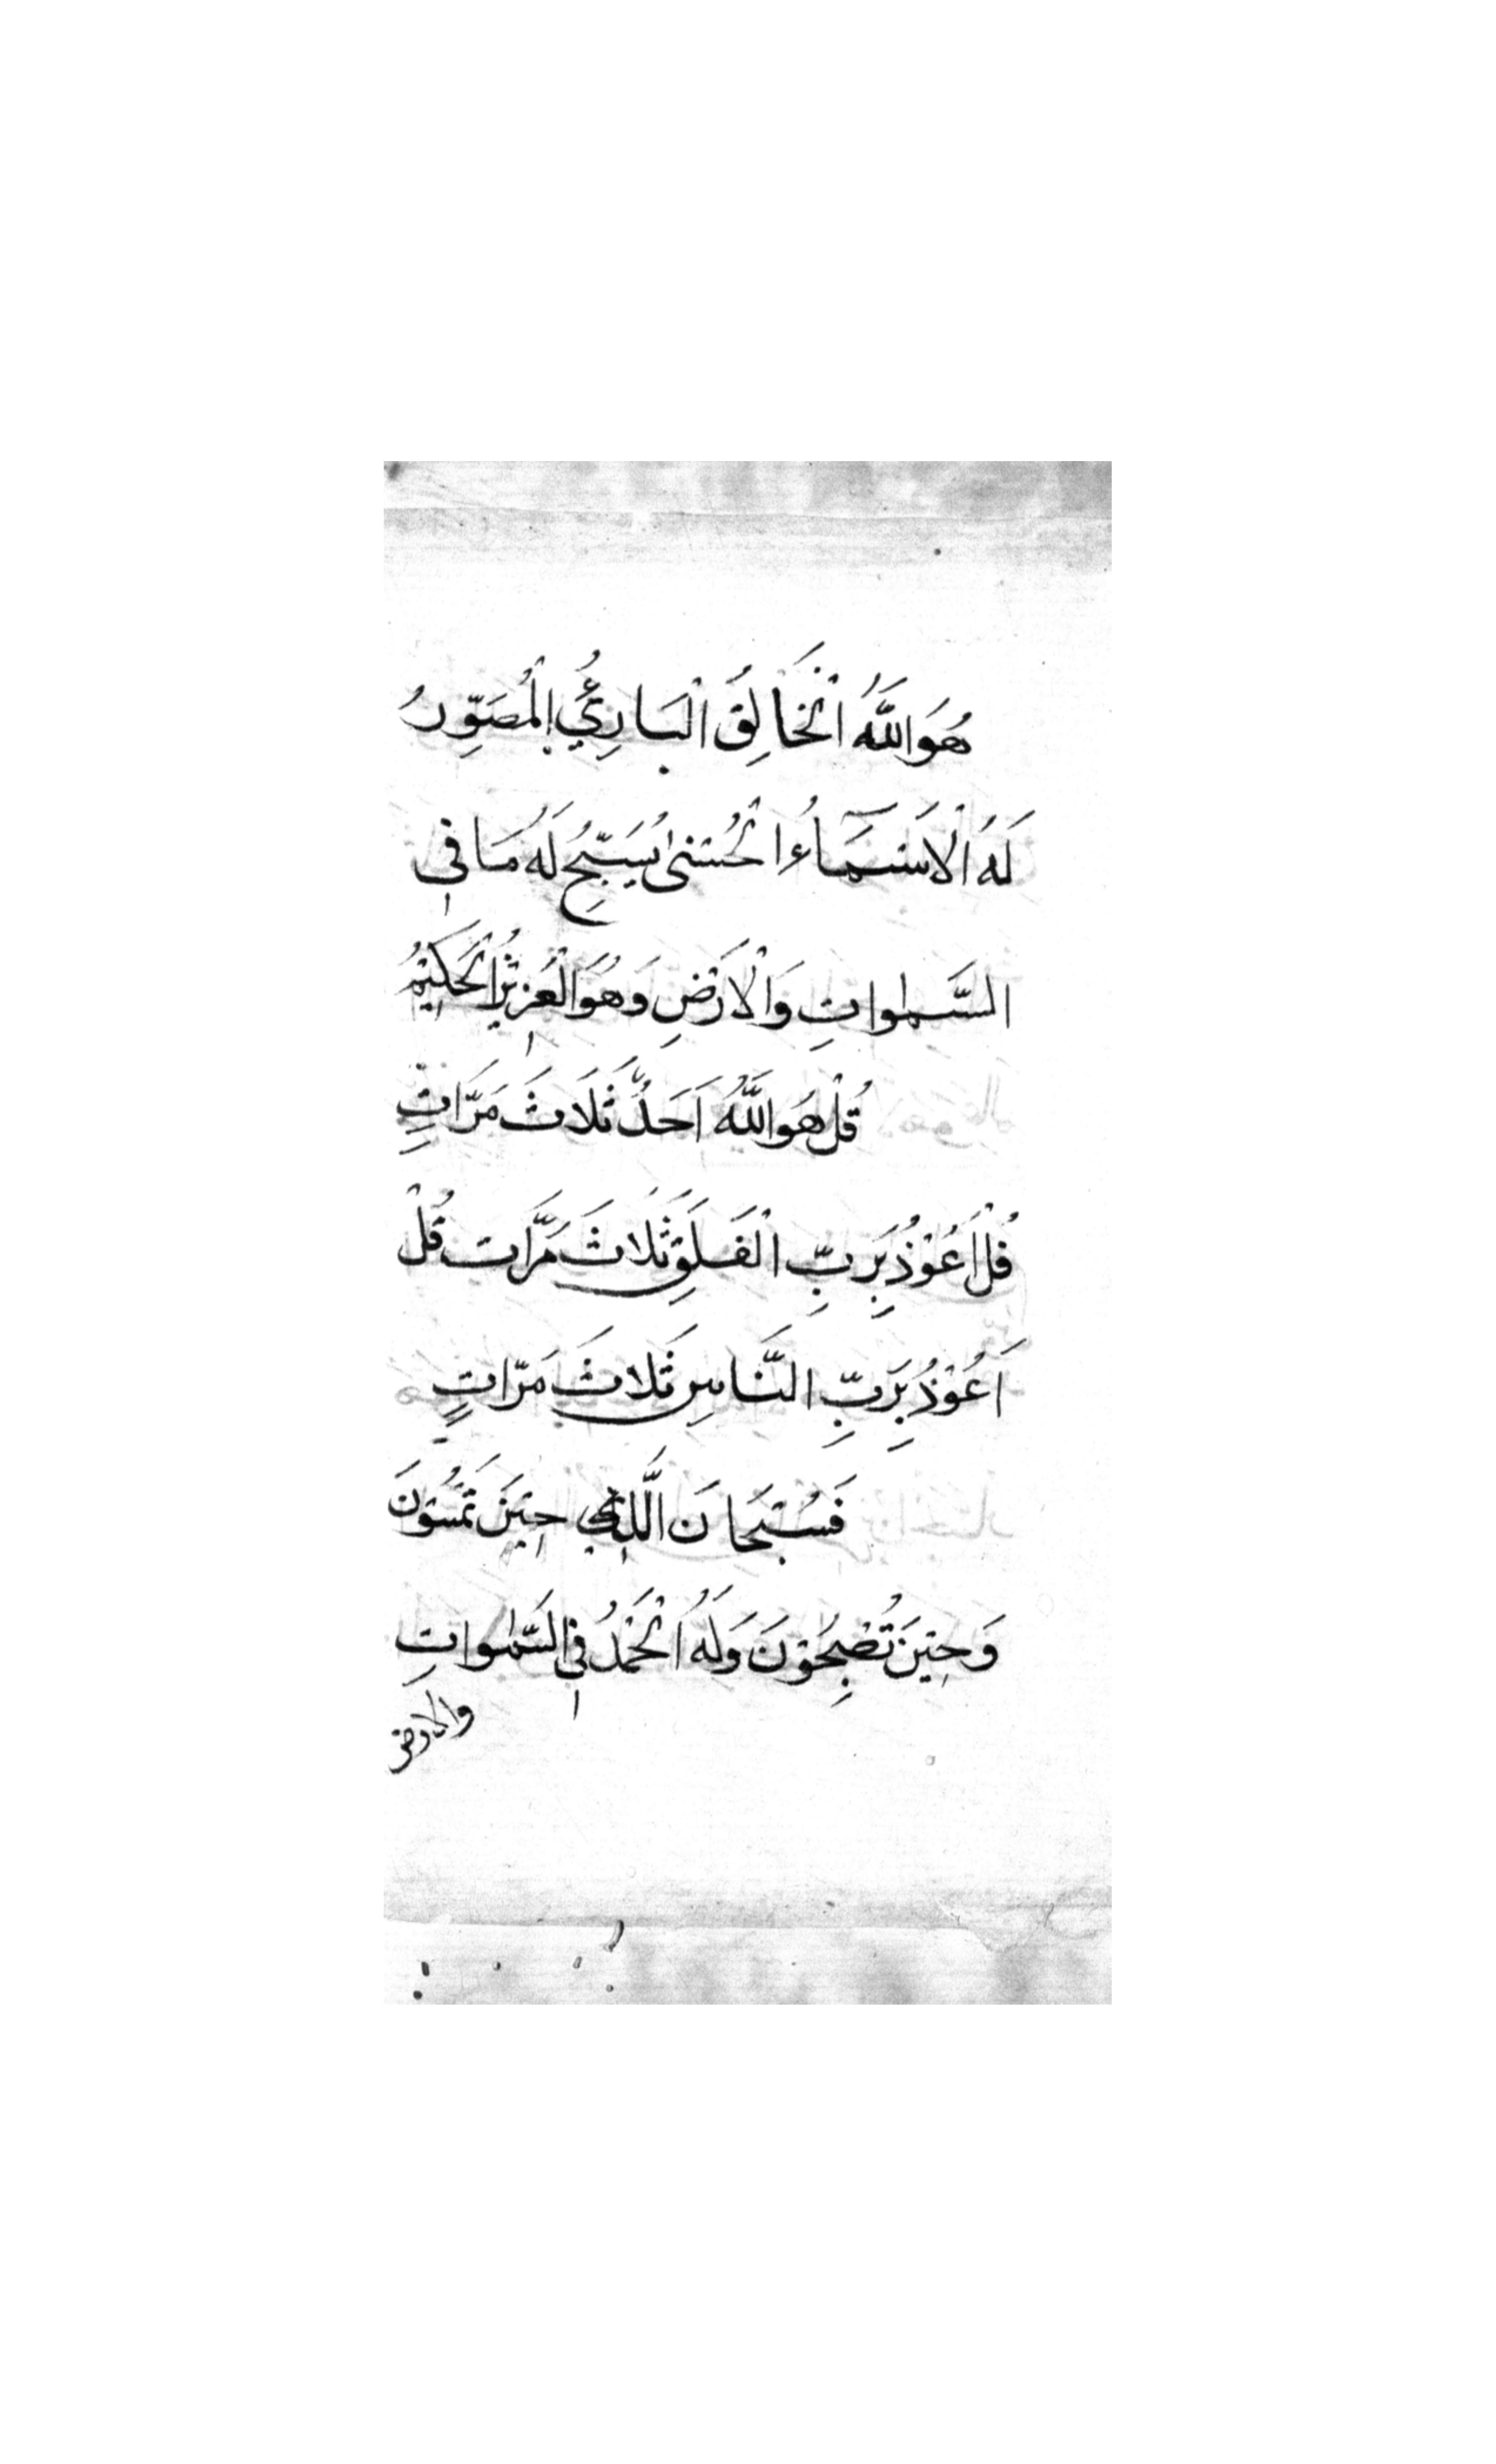 هُوَ اللَّهُ الْخَالِقُ الْبَارِئُ الْمُصَوِّرُ
لَهُ الْاَسْمَآءُ الْحُسْنٰى يُسَبِّحُ لَهُ مَا فِى
السَّمٰوَاتِ وَالْاَرْضِ وَهُوَ الْعَزِيْزُ الْحَكِيْمُ
قُلْ هُوَ اللَّهُ اَحَدٌ ثَلَاثَ مَرَّاتٍ
قُلْ اَعُوْذُ بِرَبِّ الْفَلَقِ ثَلَاثَ مَرَّات قُلْ
اَعُوْذُ بِرَبِّ النَّاسِ ثَلَاثَ مَرَّاتٍ
فَسُبْحَانَ حِيْنَ تُمْسُوْنَ
وَحِيْنَ تُصْبِحُوْنَ وَلَهُ الْحَمْدُ فِى السَّمٰوَاتِ
والارض